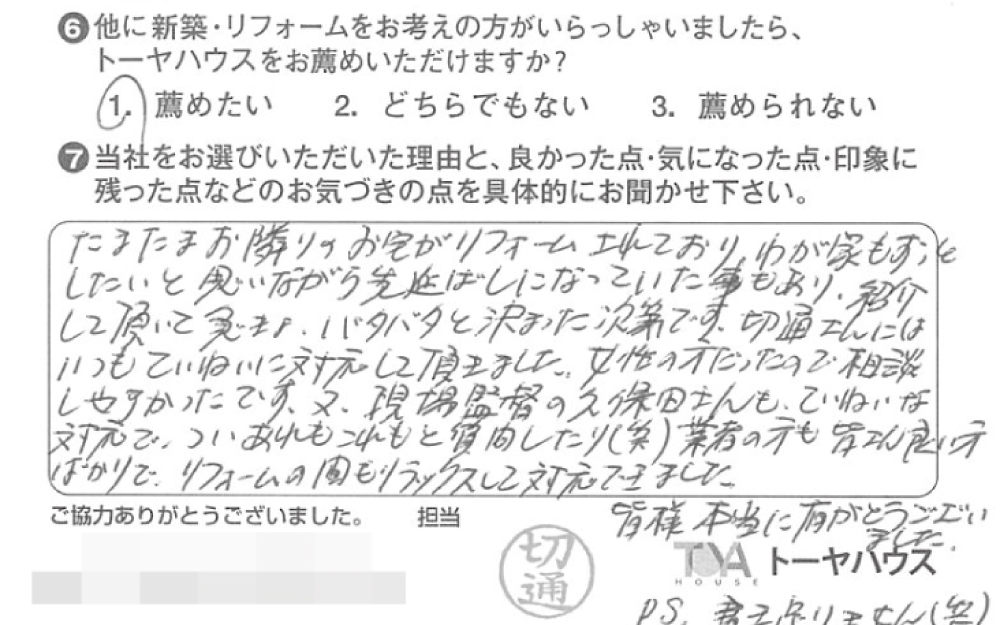 ❻他に新築・リフォームをお考えの方がいらっしゃいましたら、
トーヤハウスをお薦めいただけますか?
1. 薦めたい 2. どちらでもない 3. 薦められない
❼当社をお選びいただいた理由と、良かった点・気になった点・印象に
残った点などのお気づきの点を具体的にお聞かせ下さい。
たまたまお隣りのお宅がリフォームされており、わが家もずっと
したいと思いながら先延ばしになっていた事もあり、紹介
して頂いて急きょ、バタバタと決まった次第です。切通さんには
いつもていねいに対応して頂きました。女性の方だったので相談
しやすかったです。又、現場監督の久保田さんも、ていねいな
対応で、ついあれもこれもと質問したり(笑)業者の方も皆さん良い方
ばかりで、リフォームの間もリラックスして対応できました。
皆様 本当に有がとうございました。
ご協力ありがとうございました。 担当
切通
TOYA HOUSE トーヤハウス
P.S.